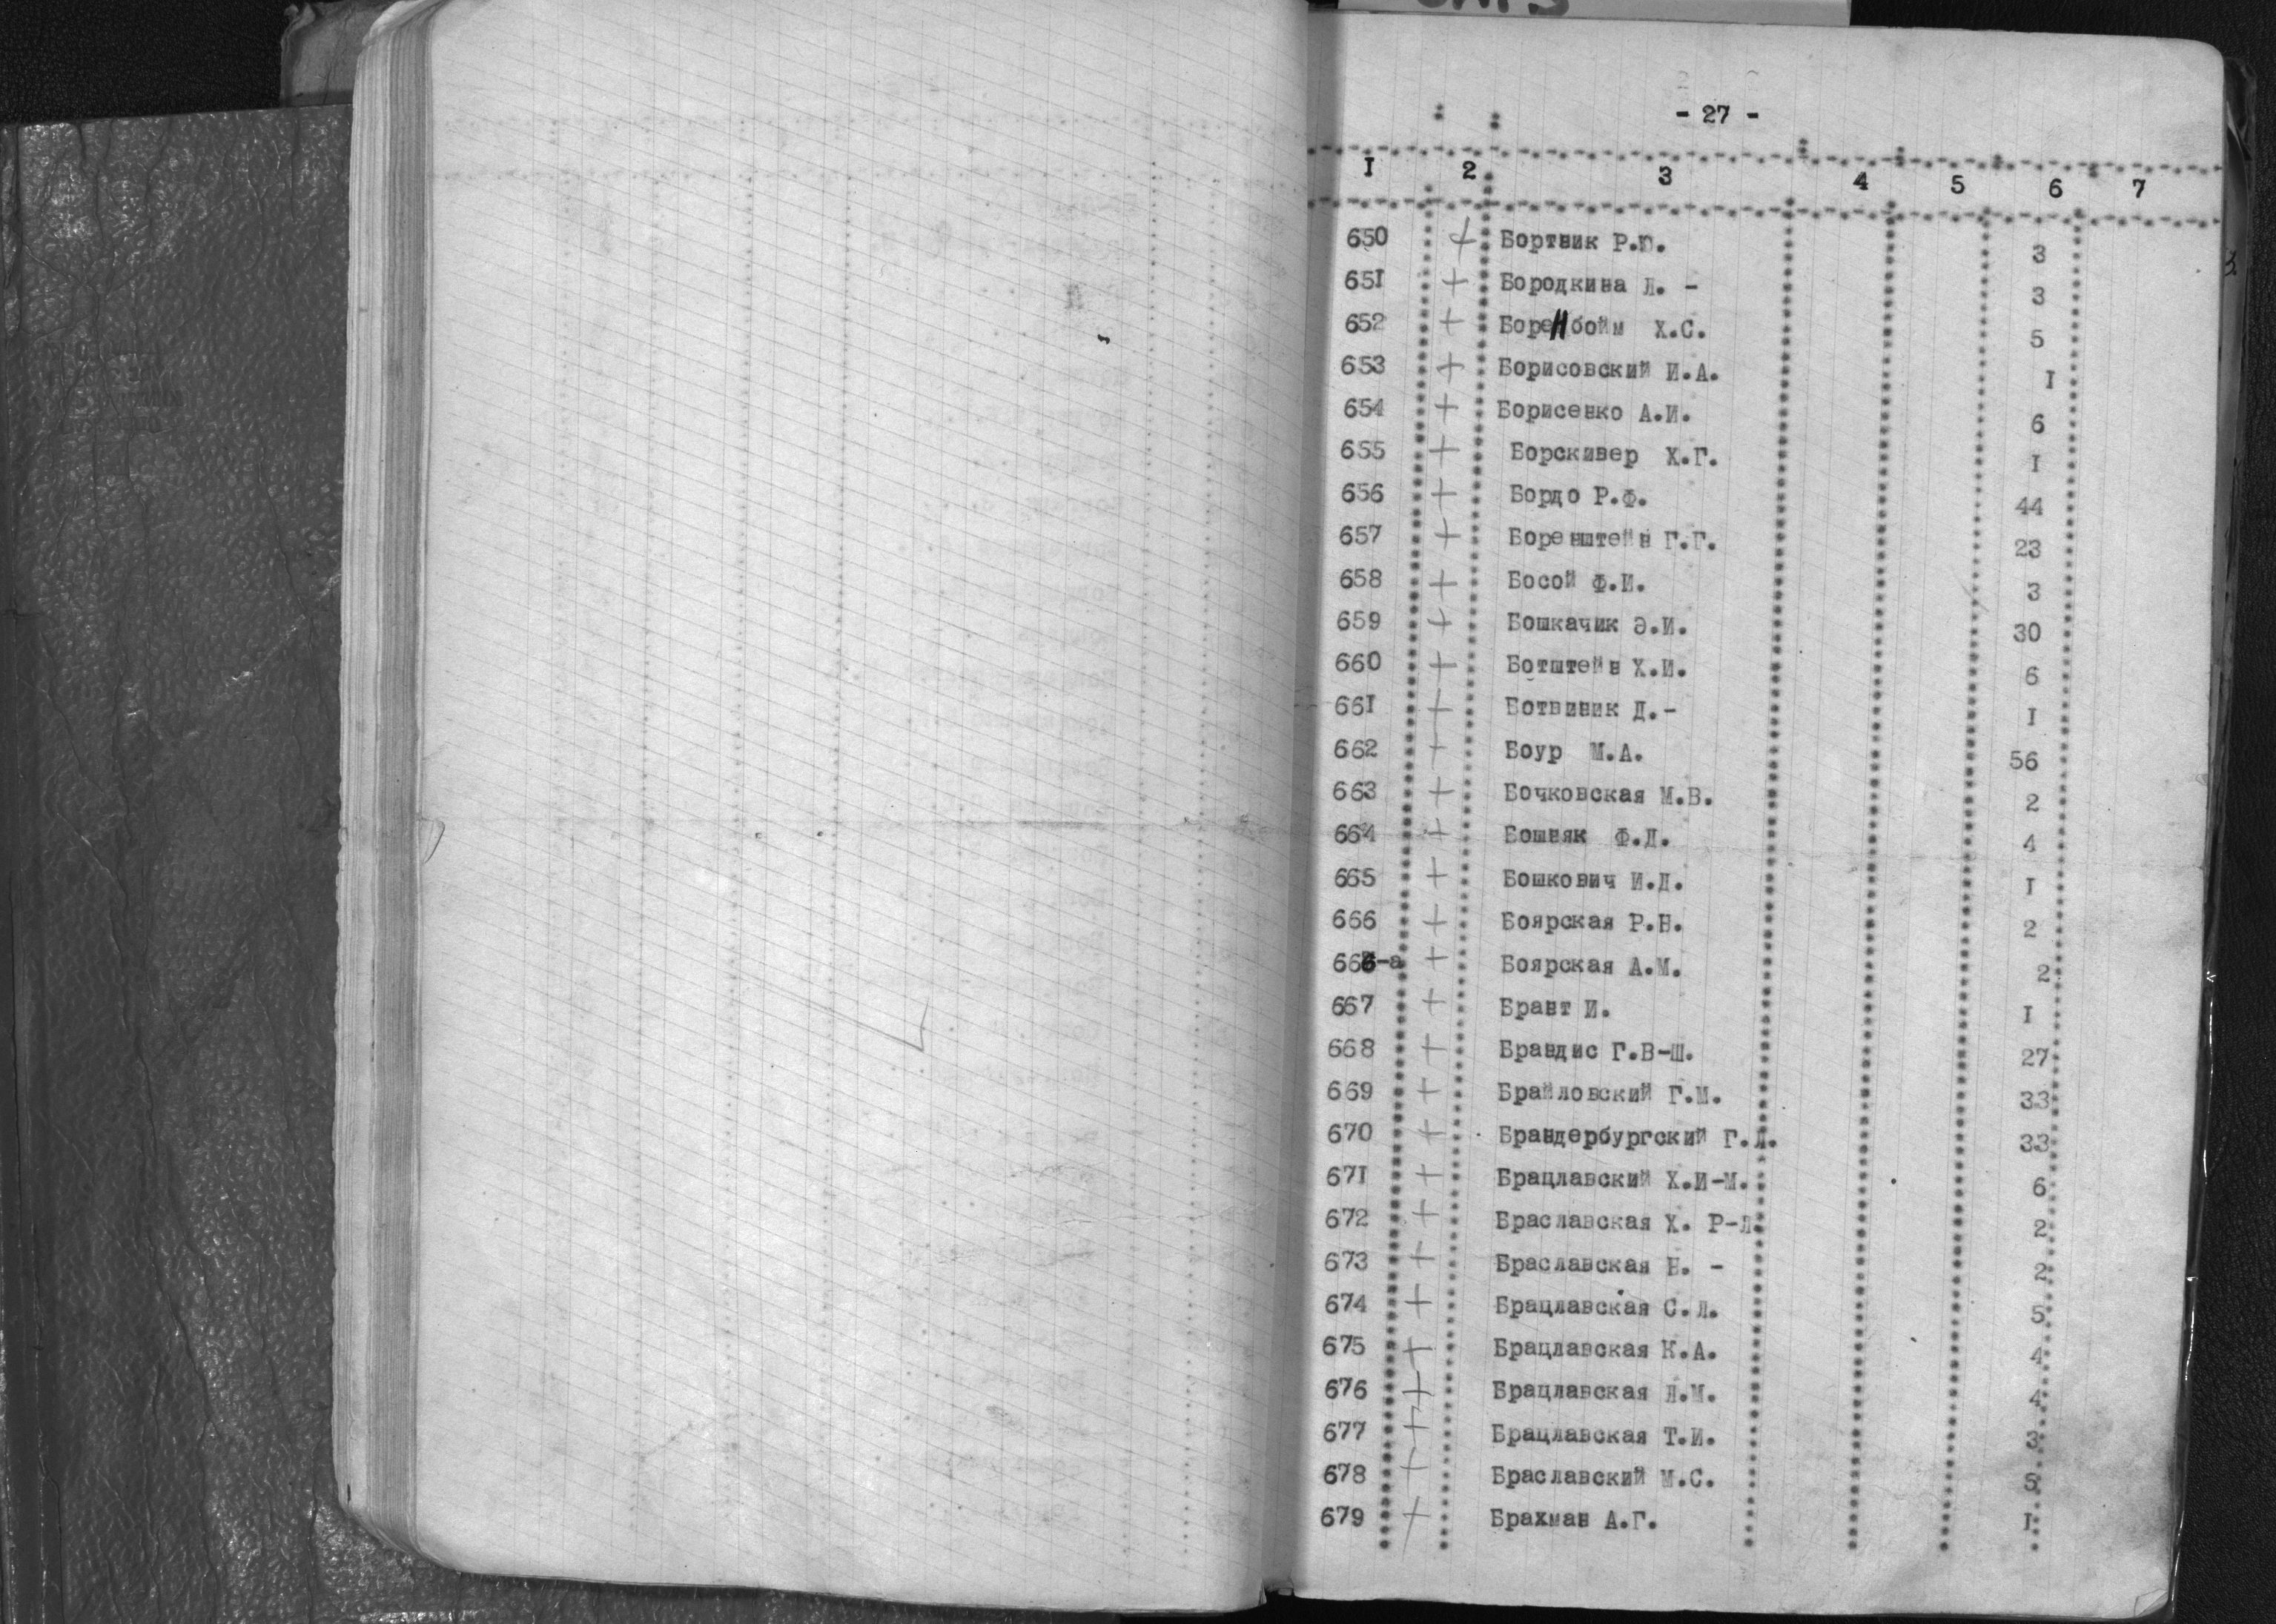 - 27 -
I 2 3 4 5 6 7
650 + Бортник Р.Ю. 3
651 + Бородкина Л. - 3
652 + Боренбойм Х.С. 5
653 + Борисовский И.А. I
654 + Борисенко А.И. 6
655 + Борскивер Х.Г. I
656 + Бордо Р.Ф. 44
657 + Боренштейн Г.Г. 23
658 + Босой Ф.И. 3
659 + Бошкачик Э.И. 30
660 + Ботштейн Х.И. 6
661 + Ботвиник Д.- I
662 + Боур М.А. 56
663 + Бочковская М.В. 2
664 + Бошняк Ф.Д. 4
665 + Бошкович И.Д. I
666 + Боярская Р.Н. 2
666-а + Боярская А.М. 2
667 + Брант И. I
668 + Брандис Г.В-Ш. 27
669 + Брайловский Г.М. 33
670 + Брандербургский Г.Л. 33
671 + Брацлавский Х.И-М. 6
672 + Браславская Х. Р-Л 2
673 + Браславская Н. - 2
674 + Брацлавская С.Л. 5
675 + Брацлавская К.А. 4
676 + Брацлавская Л.М. 4
677 + Брацлавская Т.И. 3
678 + Браславский М.С. 5
679 + Брахман А.Г. I